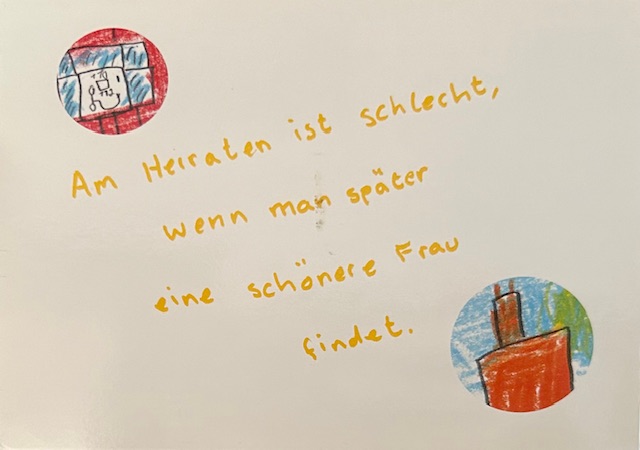 Am Heiraten ist schlecht,
wenn man später
eine schönere Frau
findet.